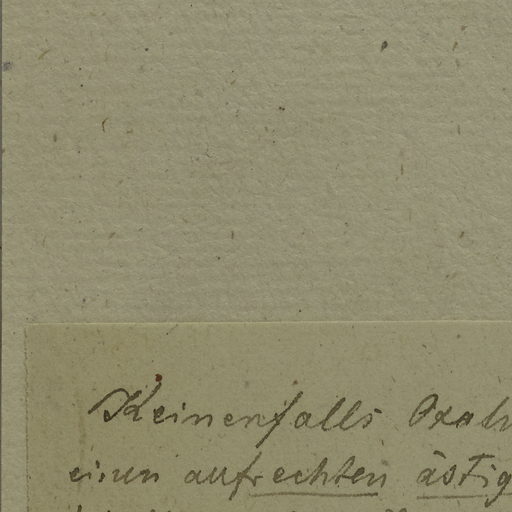 Keinenfalls Oxal
einen aufrechten ästig